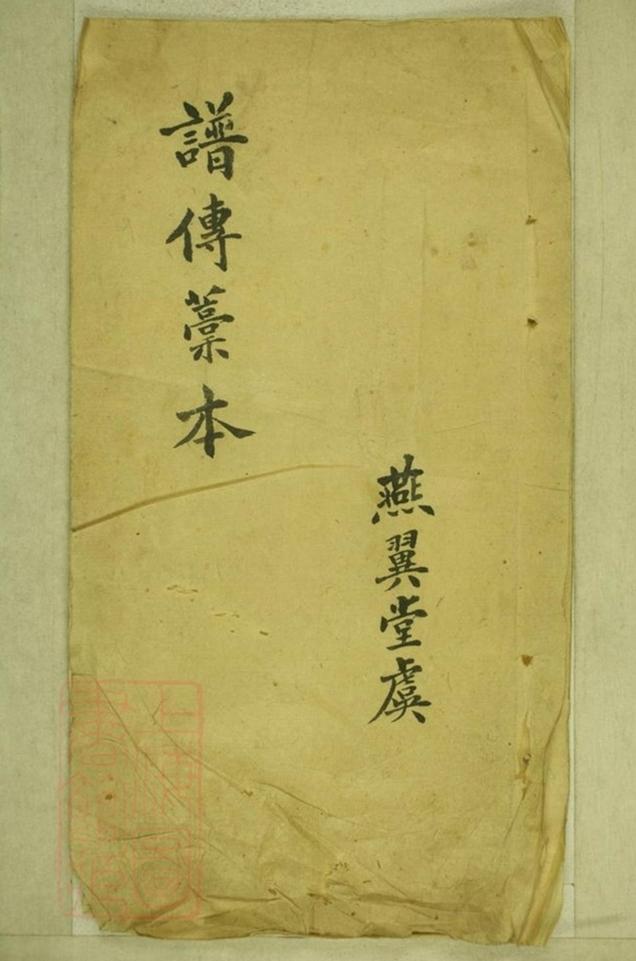 燕翼堂虞
譜傳藁本